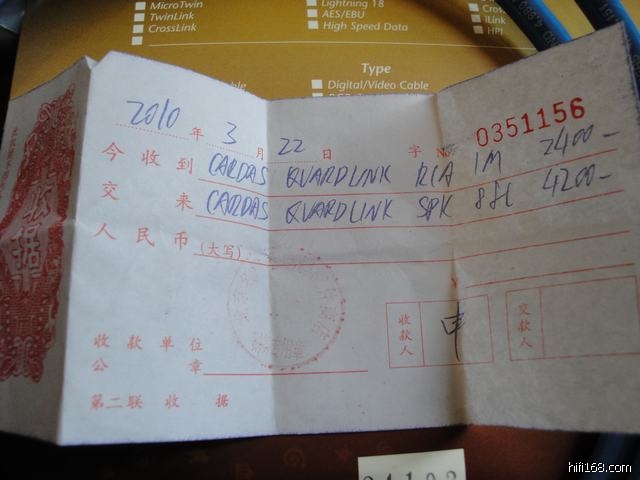 MicroTwin
TwinLink
CrossLink
Lightning 18
AES/EBU
High Speed Data
iLink
HPI
Type
Digital/Video Cable
2010 年 3 月 22 日 字 № 0351156
今收到 CARDAS QUARDLINK RCA 1M 2400-
交来 CARDAS QUARDLINK SPK 8尺 4200-
人民币(大写)
¥
收款单位
公章
收款人
申
交款人
第二联 收据
收据
hifi168.com